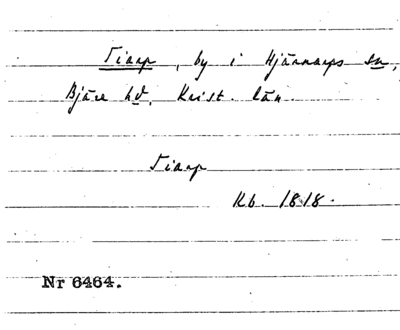 Tiarp, by i Hjärnarps sn,
Bjäre hd, Krist. län.
Tiarp
Kb. 1818.
Nr 6464.